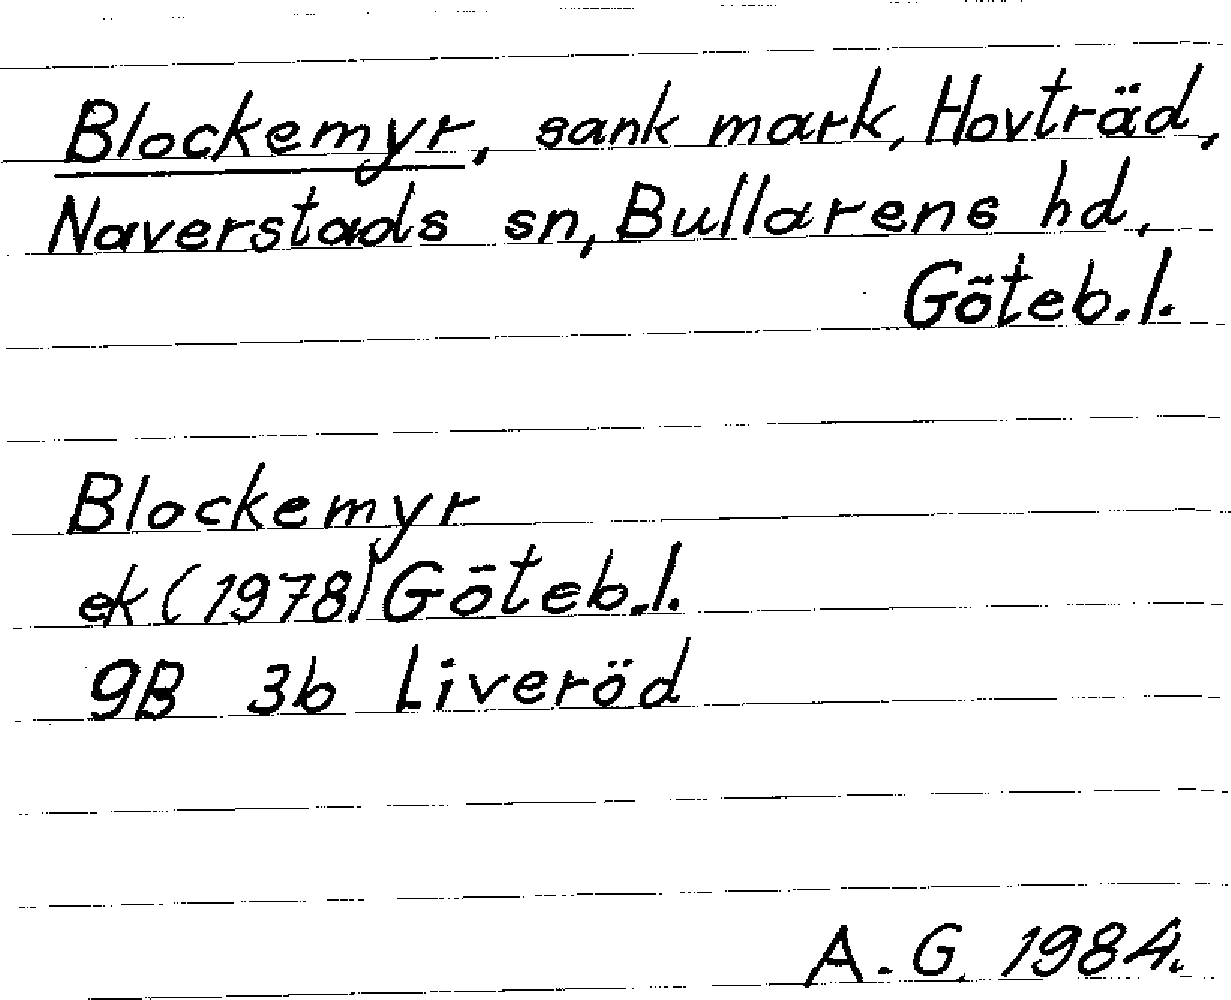 Blockemyr, sank mark, Hovträd,
Naverstads sn, Bullarens hd,
Göteb. l.
Blockemyr
ek (1978) Göteb. l.
9B 3b Liveröd
A. G. 1984.